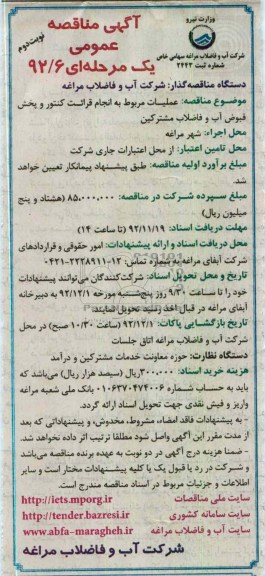 وزارت نیرو
شرکت آب و فاضلاب مراغه سهامی خاص
شماره ثبت ۲۴۴۳
آگهی مناقصه
عمومی
یک مرحله‌ای ۹۲/۶
نوبت دوم
دستگاه مناقصه‌گذار: شرکت آب و فاضلاب مراغه
موضوع مناقصه: عملیات مربوط به انجام قرائت کنتور و پخش
قبوض آب و فاضلاب مشترکین
محل اجراء: شهر مراغه
محل تامین اعتبار: از محل اعتبارات جاری شرکت
مبلغ برآورد اولیه مناقصه: طبق پیشنهاد پیمانکار تعیین خواهد
شد.
مبلغ سپرده شرکت در مناقصه: ۸۵،۰۰۰،۰۰۰ (هشتاد و پنج
میلیون ریال)
مهلت دریافت اسناد: ۹۲/۱۱/۱۹ (تا ساعت ۱۴)
محل دریافت اسناد و ارائه پیشنهادات: امور حقوقی و قراردادهای
شرکت آبفای مراغه به شماره تماس: ۱۲-۲۲۲۸۹۱۱-۰۴۲۱
تاریخ و محل تحویل اسناد: شرکت‌کنندگان می‌توانند پیشنهادات
خود را تا ساعت ۹/۳۰ روز پنج‌شنبه مورخه ۹۲/۱۲/۱ به دبیرخانه
آبفای مراغه در قبال اخذ رسید تحویل نمایند.
تاریخ بازگشایی پاکات: ۹۲/۱۲/۱ (ساعت ۱۰/۳۰ صبح) در محل
شرکت آب و فاضلاب مراغه اتاق جلسات
دستگاه نظارت: حوزه معاونت خدمات مشترکین و درآمد
هزینه خرید اسناد: ۳۰۰،۰۰۰ ریال (سیصد هزار ریال) می‌باشد که
باید به حساب شماره ۰۱۰۶۳۷۰۴۷۴۰۰۶ بانک ملی شعبه مراغه
واریز و فیش نقدی جهت تحویل اسناد ارائه گردد.
- به پیشنهادات فاقد امضاء، مشروط، مخدوش، و پیشنهاداتی که بعد
از مدت مقرر این آگهی واصل شود مطلقا ترتیب اثر داده نخواهد شد.
- ضمنا هزینه درج آگهی در دو نوبت به عهده برنده مناقصه می‌باشد
و شرکت در رد یا قبول یک یا کلیه پیشنهادات مختار است و سایر
اطلاعات و جزئیات مربوط در اسناد مناقصه مندرج است.
سایت ملی مناقصات http://iets.mporg.ir
سایت سامانه کشوری http://tender.bazresi.ir
سایت آب و فاضلاب مراغه www.abfa-maragheh.ir
شرکت آب و فاضلاب مراغه